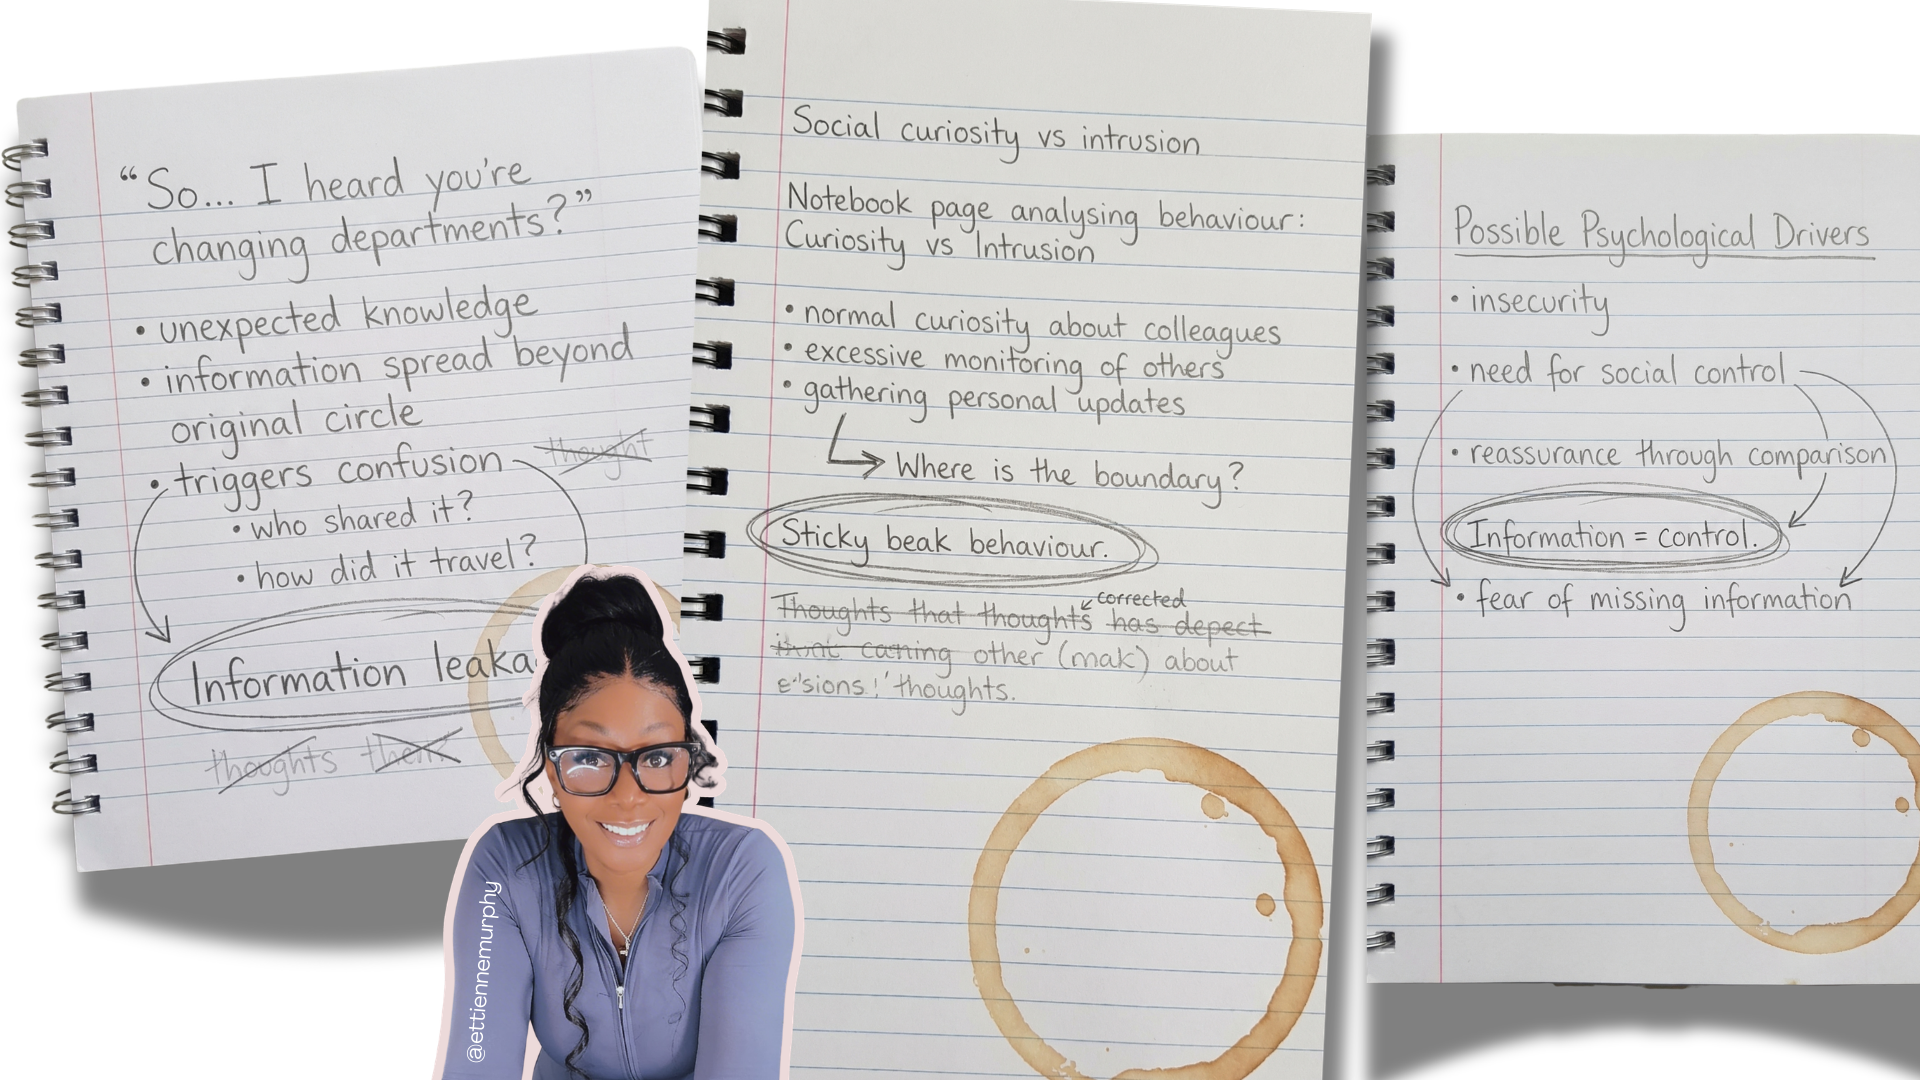 “So... I heard you're
changing departments?”
• unexpected knowledge
• information spread beyond
original circle
thought
• triggers confusion
• who shared it?
• how did it travel?
Information leaka
thoughts them
@ettiennemurphy
Social curiosity vs intrusion
Notebook page analysing behaviour:
Curiosity vs Intrusion
• normal curiosity about colleagues
• excessive monitoring of others
• gathering personal updates
Where is the boundary?
Sticky beak behaviour.
corrected
Thoughts that thoughts has depect
other (mak) about
thoughts.
Possible Psychological Drivers
• insecurity
• need for social control
• reassurance through comparison
Information = control.
• fear of missing information